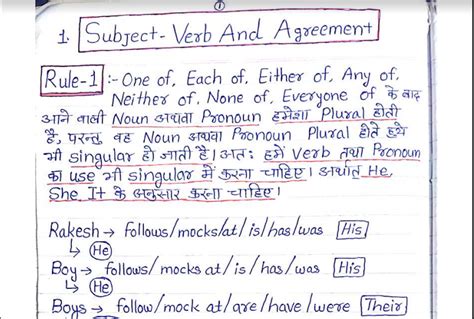 ①
1. Subject-Verb And Agreement
Rule-1 :- One of, Each of, Either of, Any of,
Neither of, None of, Everyone of के बाद
आने वाली Noun अथवा Pronoun हमेशा Plural होती
है, परन्तु वह Noun अथवा Pronoun Plural होते हुये
भी singular हो जाती है। अतः हमें Verb तथा Pronoun
का use भी singular में करना चाहिए। अर्थात् He,
She, It के अनुसार करना चाहिए।
Rakesh → follows/mocks/at/is/has/was His
↳ He
Boy → follows/mocks at/is/has/was His
↳ He
Boys → follow/mock at/are/have/were Their